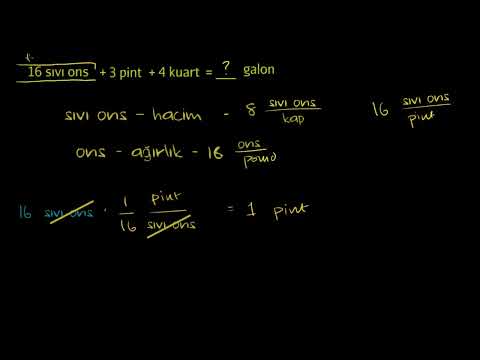 16 sıvı ons + 3 pint + 4 kuart = ? galon
sıvı ons - hacim - 8 sıvı ons / kap 16 sıvı ons / pint
ons - ağırlık - 16 ons / pound
16 sıvı ons · 1/16 pint / sıvı ons = 1 pint